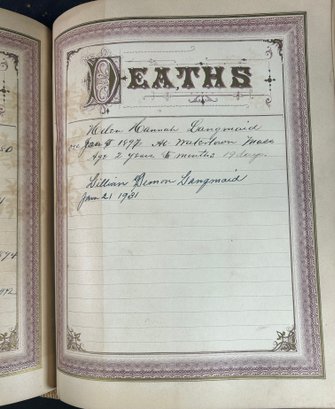 DEATHS
Helen Hannah Langmaid
Jan 1897. At Watertown Mass
Age 2 years 6 months 19 days.
Lillian Demon Langmaid
Jan 21 1931